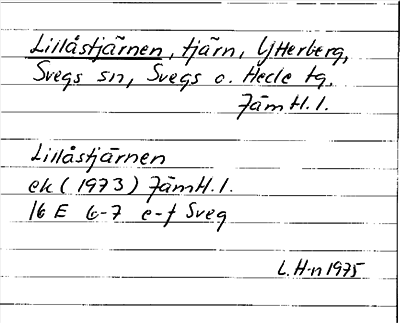 Lillåstjärnen, tjärn, Ytterberg,
Svegs sn, Svegs o. Hede tg,
Jämtl. l.
Lillåstjärnen
ek (1973) Jämtl. l.
16 E 6-7 e-f Sveg
L. H-n 1975